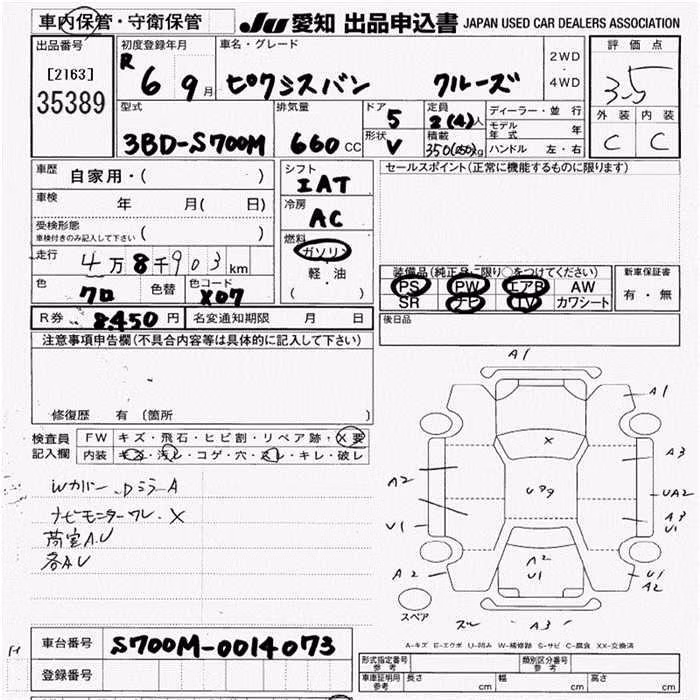 車内保管・守衛保管 JU 愛知 出品申込書 JAPAN USED CAR DEALERS ASSOCIATION
出品番号 [2163] 35389
初度登録年月 R 6 9月
車名・グレード ピクシスバン クルーズ
2WD・4WD
評価点 3.5
外装 C 内装 C
型式 3BD-S700M
排気量 660 CC
ドア 5
形状 V
定員 2(4)人
積載 350(250)kg
ディーラー・並行
モデル年式 年
ハンドル 左・右
車歴 自家用・( )
車検 年 月( 日)
受検形態
車検付きのみ記入して下さい ( )
走行 4万8千903km
色 クロ 色替 色コード X07
シフト IAT
冷房 AC
燃料 ガソリン
軽・油
( )
セールスポイント(正常に機能するものに限ります)
装備品(純正品に限り○をつけてください)
PS PW エアB AW
SR ナビ TV カワシート
新車保証書
有・無
R券 8,450円 名変通知期限 月 日
後日品
注意事項申告欄(不具合内容等は具体的に記入して下さい)
修復歴 有(箇所 )
検査員記入欄
FW キズ・飛石・ヒビ割・リペア跡・X要
内装 キズ・汚レ・コゲ・穴・スレ・キレ・破レ
Wカバー、DミラーA
ナビモニターワレ、X
荷室A.U
各AU
A1
A1
X
A2
A3
Uアク
UA2
U1
A3
U1
A2
U1
A2
U1
A2
スペア
スレ
A3
A-キズ E-エクボ U-凹み W-補修跡 S-サビ C-腐食 XX-交換済
車台番号 S700M-0014073
登録番号
形式指定番号 参考
類別区分番号 参考
車庫証明用 参考 長さ cm 幅 cm 高さ cm